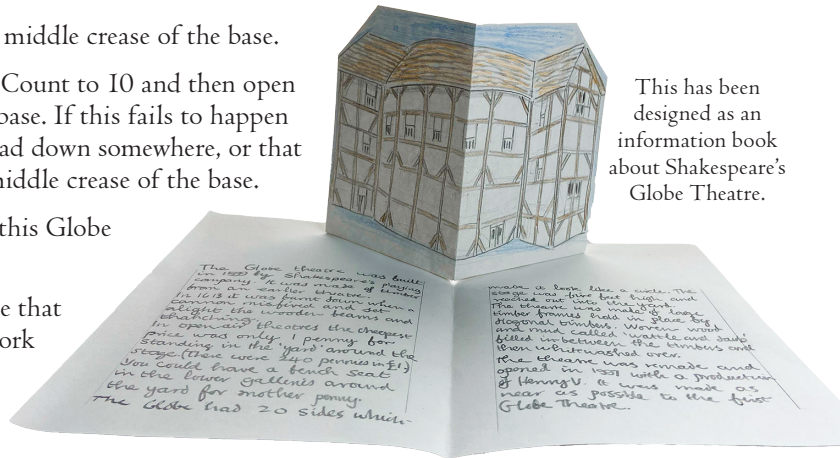 middle crease of the base.
Count to 10 and then open
base. If this fails to happen
ad down somewhere, or that
middle crease of the base.
this Globe
e that
ork
This has been
designed as an
information book
about Shakespeare's
Globe Theatre.
The Globe theatre was built
in by Shakespeare's playing
company. It was made of timber
from an earlier theatre.
In 1613 it was burnt down when a
cannon misfired and set
alight the wooden beams and
thatching.
In open-air theatres the cheapest
price was only 1 penny for
standing in the 'yard' around the
stage. (There were 240 pennies in £1)
You could have a bench seat
in the lower galleries around
the yard for another penny.
The Globe had 20 sides which
made it look like a circle. The
stage was five feet high and
reached out into the yard.
The theatre was made of large
timber frames held in place by
diagonal timbers. Woven wood
and mud called 'wattle and daub'
filled in between the timbers and
then whitewashed over.
The theatre was remade and
opened in with a production
of Henry V. It was made as
near as possible to the first
Globe Theatre.